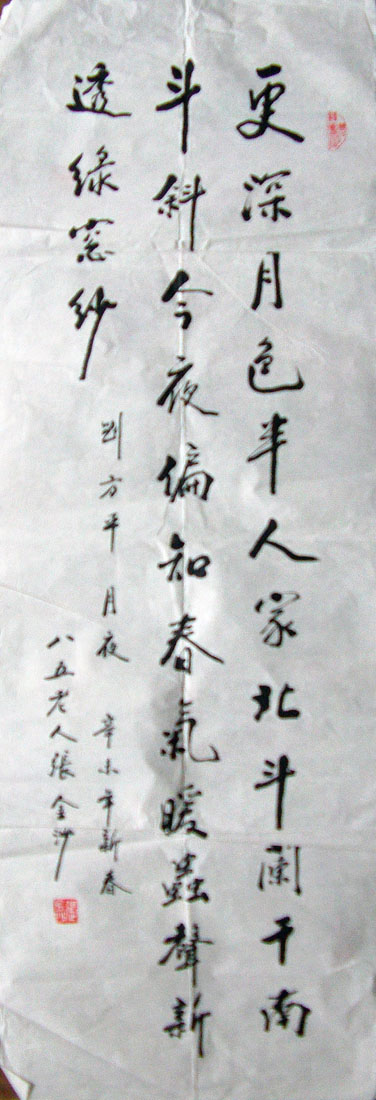 更深月色半人家北斗闌干南
斗斜今夜偏知春氣暖蟲聲新
透綠窓紗
劉方平 月夜 辛未年新春
八五老人張金沙